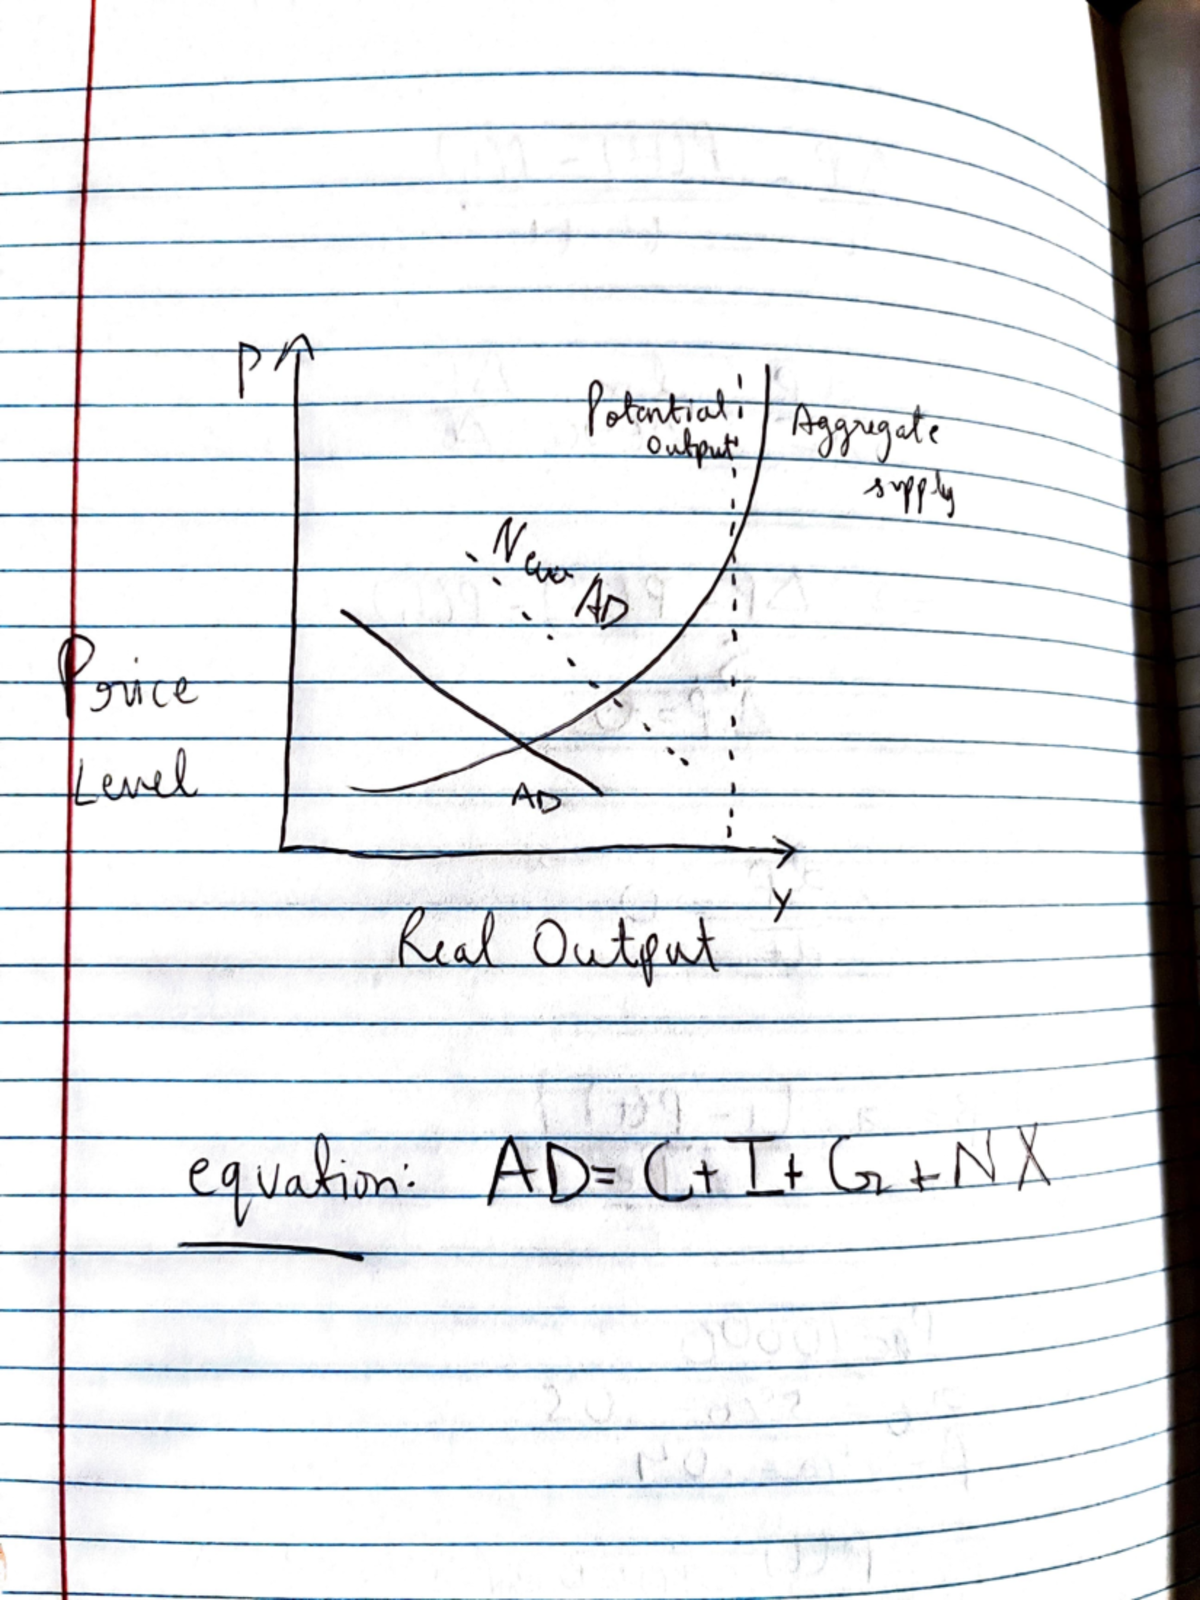 P
Potential
output
Aggregate
supply
New
AD
Price
Level
AD
Y
Real Output
equation: AD= C+I+G+NX